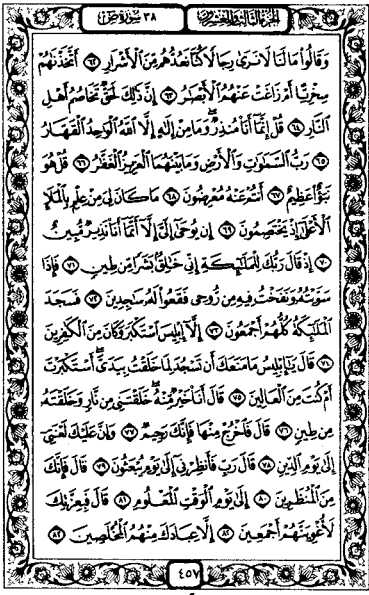 الجزء الثالث والعشرون ٣٨ سورة ص
وَقَالُوا۟ مَا لَنَا لَا نَرَىٰ رِجَالًا كُنَّا نَعُدُّهُم مِّنَ ٱلْأَشْرَارِ ٦٢ أَتَّخَذْنَٰهُمْ
سِخْرِيًّا أَمْ زَاغَتْ عَنْهُمُ ٱلْأَبْصَٰرُ ٦٣ إِنَّ ذَٰلِكَ لَحَقٌّ تَخَاصُمُ أَهْلِ
ٱلنَّارِ ٦٤ قُلْ إِنَّمَآ أَنَا۠ مُنذِرٌ ۖ وَمَا مِنْ إِلَٰهٍ إِلَّا ٱللَّهُ ٱلْوَٰحِدُ ٱلْقَهَّارُ
٦٥ رَبُّ ٱلسَّمَٰوَٰتِ وَٱلْأَرْضِ وَمَا بَيْنَهُمَا ٱلْعَزِيزُ ٱلْغَفَّٰرُ ٦٦ قُلْ هُوَ
نَبَؤٌا۟ عَظِيمٌ ٦٧ أَنتُمْ عَنْهُ مُعْرِضُونَ ٦٨ مَا كَانَ لِىَ مِنْ عِلْمٍۭ بِٱلْمَلَإِ
ٱلْأَعْلَىٰٓ إِذْ يَخْتَصِمُونَ ٦٩ إِن يُوحَىٰٓ إِلَىَّ إِلَّآ أَنَّمَآ أَنَا۠ نَذِيرٌ مُّبِينٌ
٧٠ إِذْ قَالَ رَبُّكَ لِلْمَلَٰٓئِكَةِ إِنِّى خَٰلِقٌۢ بَشَرًا مِّن طِينٍ ٧١ فَإِذَا
سَوَّيْتُهُۥ وَنَفَخْتُ فِيهِ مِن رُّوحِى فَقَعُوا۟ لَهُۥ سَٰجِدِينَ ٧٢ فَسَجَدَ
ٱلْمَلَٰٓئِكَةُ كُلُّهُمْ أَجْمَعُونَ ٧٣ إِلَّآ إِبْلِيسَ ٱسْتَكْبَرَ وَكَانَ مِنَ ٱلْكَٰفِرِينَ
٧٤ قَالَ يَٰٓإِبْلِيسُ مَا مَنَعَكَ أَن تَسْجُدَ لِمَا خَلَقْتُ بِيَدَىَّ ۖ أَسْتَكْبَرْتَ
أَمْ كُنتَ مِنَ ٱلْعَالِينَ ٧٥ قَالَ أَنَا۠ خَيْرٌ مِّنْهُ ۖ خَلَقْتَنِى مِن نَّارٍ وَخَلَقْتَهُۥ
مِن طِينٍ ٧٦ قَالَ فَٱخْرُجْ مِنْهَا فَإِنَّكَ رَجِيمٌ ٧٧ وَإِنَّ عَلَيْكَ لَعْنَتِىٓ
إِلَىٰ يَوْمِ ٱلدِّينِ ٧٨ قَالَ رَبِّ فَأَنظِرْنِىٓ إِلَىٰ يَوْمِ يُبْعَثُونَ ٧٩ قَالَ فَإِنَّكَ
مِنَ ٱلْمُنظَرِينَ ٨٠ إِلَىٰ يَوْمِ ٱلْوَقْتِ ٱلْمَعْلُومِ ٨١ قَالَ فَبِعِزَّتِكَ
لَأُغْوِيَنَّهُمْ أَجْمَعِينَ ٨٢ إِلَّا عِبَادَكَ مِنْهُمُ ٱلْمُخْلَصِينَ ٨٣
٤٥٧